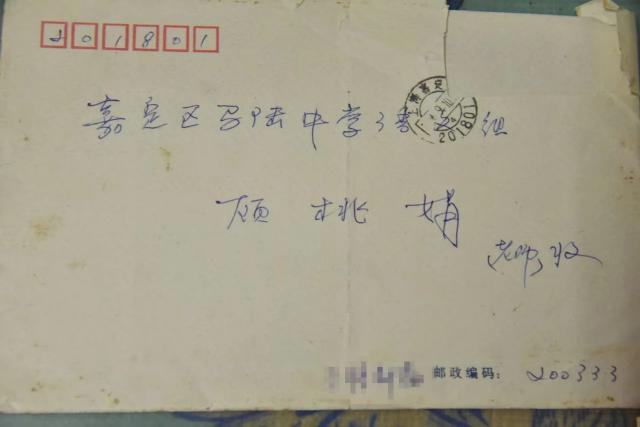 201801
嘉定区马陆中学语文组
上海嘉定
201801
顾桃娟
老师收
邮政编码: 200333